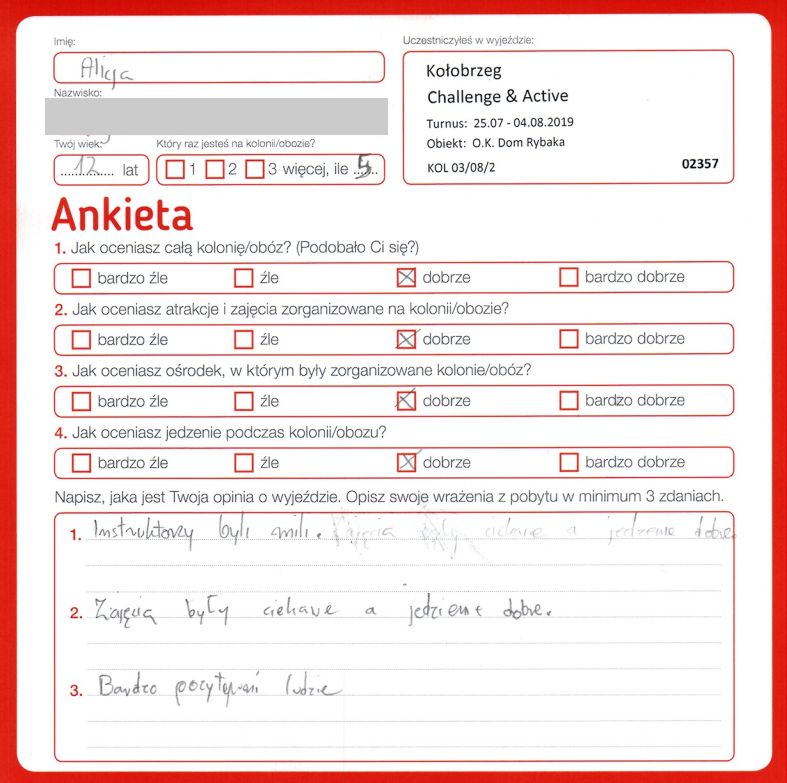 Imię:
Uczestniczyłeś w wyjeździe:
Alicja
Kołobrzeg
Nazwisko:
Challenge & Active
Turnus: 25.07 - 04.08.2019
Twój wiek:
Który raz jesteś na kolonii/obozie?
Obiekt: O.K. Dom Rybaka
12 lat
1 2 3 więcej, ile 5
KOL 03/08/2
02357
Ankieta
1. Jak oceniasz całą kolonię/obóz? (Podobało Ci się?)
bardzo źle źle dobrze bardzo dobrze
2. Jak oceniasz atrakcje i zajęcia zorganizowane na kolonii/obozie?
bardzo źle źle dobrze bardzo dobrze
3. Jak oceniasz ośrodek, w którym były zorganizowane kolonie/obóz?
bardzo źle źle dobrze bardzo dobrze
4. Jak oceniasz jedzenie podczas kolonii/obozu?
bardzo źle źle dobrze bardzo dobrze
Napisz, jaka jest Twoja opinia o wyjeździe. Opisz swoje wrażenia z pobytu w minimum 3 zdaniach.
1. Instruktorzy byli mili. Zajęcia były ciekawe a jedzenie dobre.
2. Zajęcia były ciekawe a jedzienie dobre.
3. Bardzo ludzie